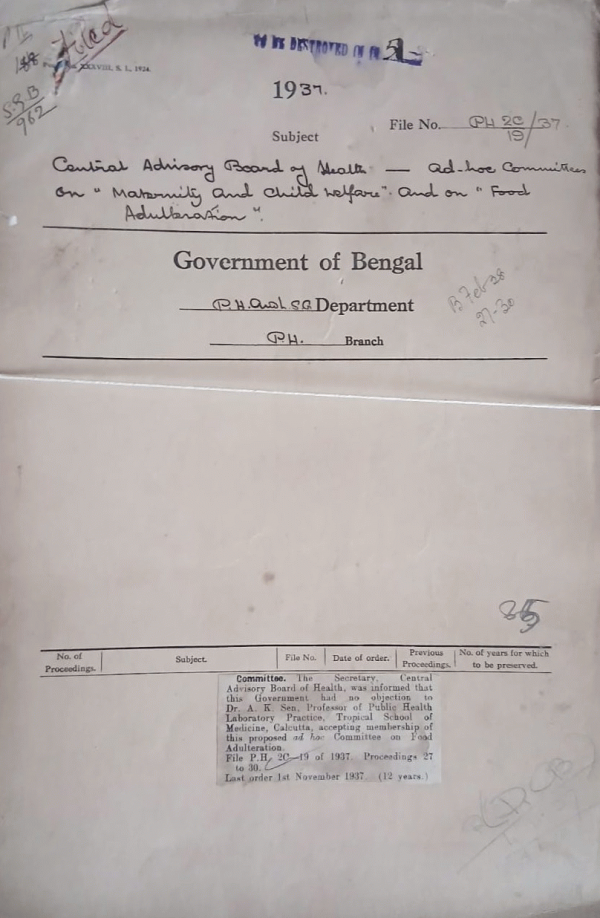 Filed
XXXVIII, S. L., 1924.
S.G.B
962
TO BE DESTROYED IN
1937.
File No. PH 2C/19/37.
Subject
Central Advisory Board of Health — Ad-hoc Committees
on "Maternity and Child Welfare" and on "Food
Adulteration".
Government of Bengal
P.H. and L.S.G. Department
P.H. Branch
B Feb 38
27-30
No. of Proceedings. Subject. File No. Date of order. Previous Proceedings. No. of years for which to be preserved.
Committee. The Secretary, Central
Advisory Board of Health, was informed that
this Government had no objection to
Dr. A. K. Sen, Professor of Public Health
Laboratory Practice, Tropical School of
Medicine, Calcutta, accepting membership of
this proposed ad hoc Committee on Food
Adulteration.
File P.H. 2C—19 of 1937. Proceedings 27
to 30.
Last order 1st November 1937. (12 years.)